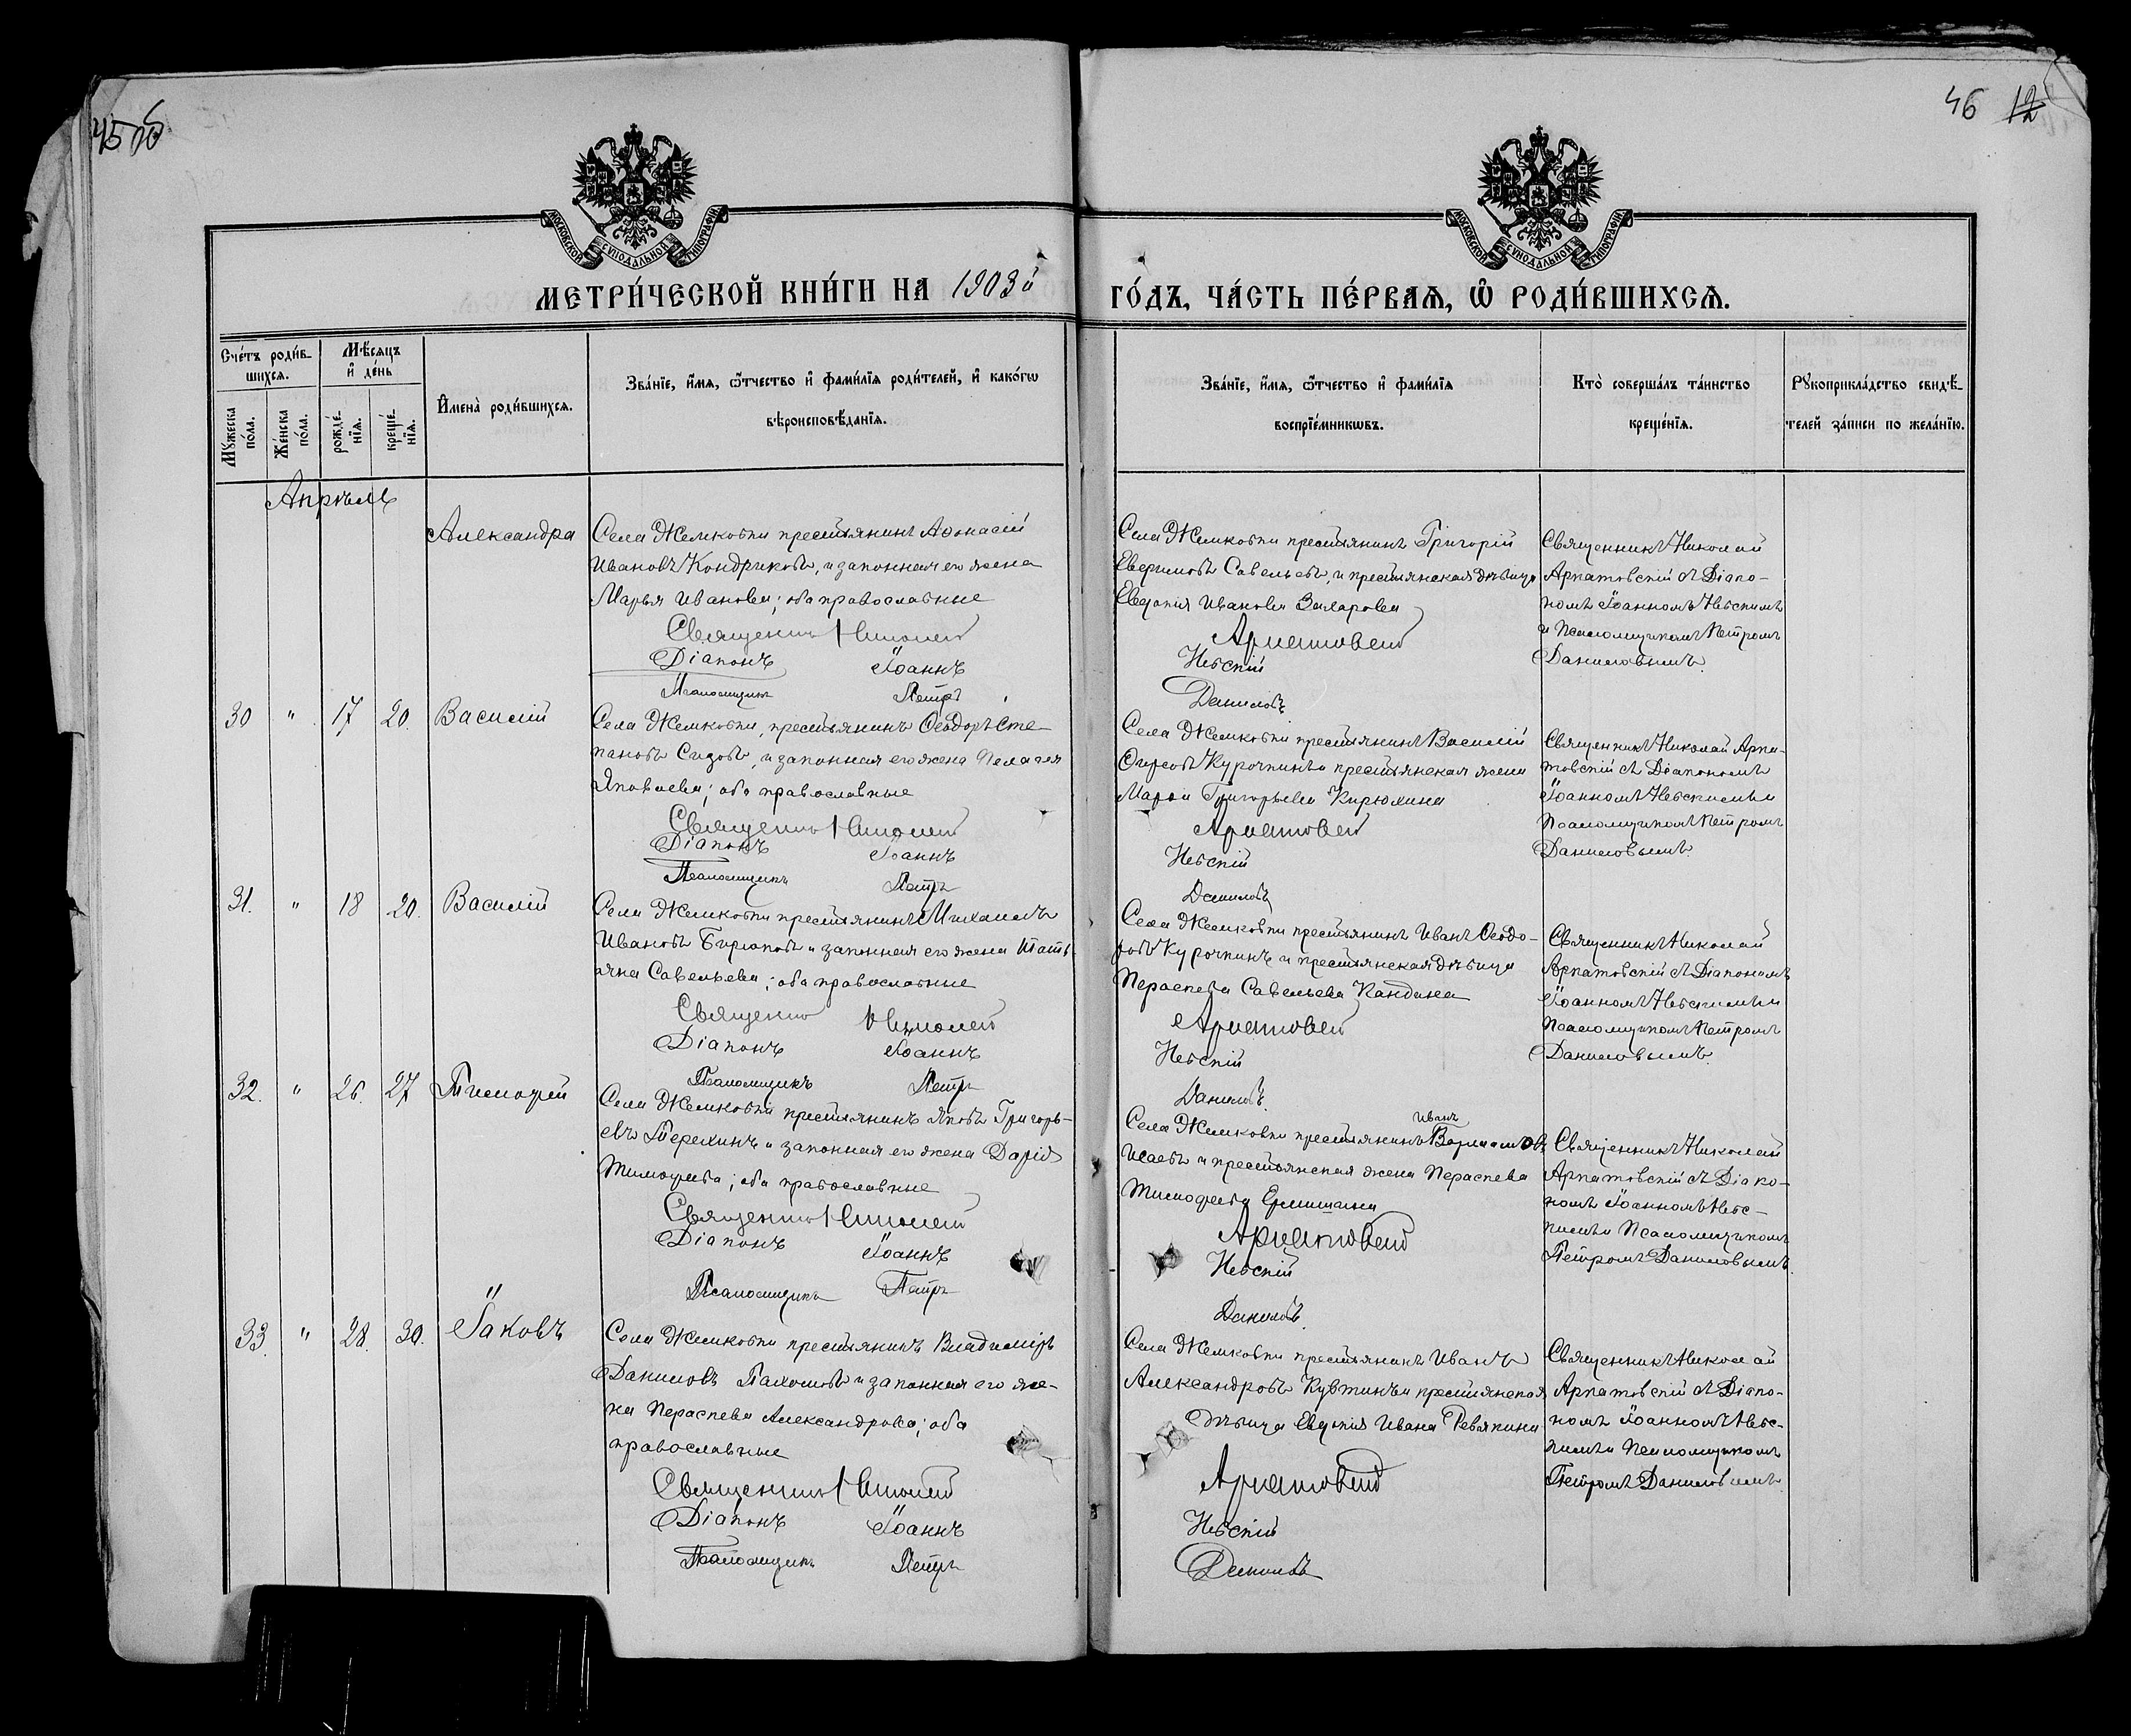 45 об
46 12
МОСКОВСКОЙ СѴНОДАЛЬНОЙ ТИПОГРАФІИ
МОСКОВСКОЙ СѴНОДАЛЬНОЙ ТИПОГРАФІИ
МЕТРИ́ЧЕСКОЙ КНИ́ГИ НА 1903й ГО́ДЪ, ЧА́СТЬ ПЕ́РВАѦ, Ѡ҆ РОДИ́ВШИХСѦ.
Сче́тъ роди́в-
шихсѧ.
Мꙋ́жеска
по́ла.
Же́нска
по́ла.
Мѣ́сѧцъ
и҆ де́нь
рожде́-
нїѧ.
креще́-
нїѧ.
И҆мена̀ роди́вшихсѧ.
Зва́нїе, и҆́мѧ, ѻ҆́тчество и҆ фами́лїѧ роди́телей, и҆ како́гѡ
вѣроисповѣ́данїѧ.
Зва́нїе, и҆́мѧ, ѻ҆́тчество и҆ фами́лїѧ
воспрїе́мникѡвъ.
Кто̀ соверша́лъ та́инство
креще́нїѧ.
Рꙋкоприкла́дство свидѣ́-
телей за́писи по жела́нїю.
Апрѣль
Александра
Села Жемковки крестьянинъ Афонасій
Ивановъ Кондриковъ, и законная его жена
Марья Иванова; оба православные
Священникъ Николай
Діаконъ Іоаннъ
Псаломщикъ Петръ
Села Жемковки крестьянинъ Григорій
Савельевъ, и крестьянская дѣвица
Евдокія Иванова Захарова
Аркатовскій
Невскій
Даниловъ
Священникъ Николай
Аркатовскій съ Діако-
номъ Іоанномъ Невскимъ
и Псаломщикомъ Петромъ
Даниловымъ.
30 " 17 20. Василій
Села Жемковки, крестьянинъ Ѳеодоръ Сте-
пановъ Сизовъ, и законная его жена Пелагея
Яковлева; оба православные
Священникъ Николай
Діаконъ Іоаннъ
Псаломщикъ Петръ
Села Жемковки крестьянинъ Василій
Курочкинъ и крестьянская жена
Марѳа Григорьева Кирюхина
Аркатовскій
Невскій
Даниловъ
Священникъ Николай Арка-
товскій съ Діакономъ
Іоанномъ Невскимъ и
Псаломщикомъ Петромъ
Даниловымъ.
31. " 18 20. Василій
Села Жемковки крестьянинъ Михаилъ
Ивановъ Бирюковъ и законная его жена Тать-
яна Савельева; оба православные
Священникъ Николай
Діаконъ Іоаннъ
Псаломщикъ Петръ
Села Жемковки крестьянинъ Иванъ Ѳеодо-
ровъ Курочкинъ и крестьянская дѣвица
Параскева Савельева Кандина
Аркатовскій
Невскій
Даниловъ.
Священникъ Николай
Аркатовскій съ Діакономъ
Іоанномъ Невскимъ и
Псаломщикомъ Петромъ
Даниловымъ.
32. " 26. 27 Тимофей
Села Жемковки крестьянинъ Яковъ Григорь-
евъ Терехинъ и законная его жена Дарія
Тимофеева; оба православные
Священникъ Николай
Діаконъ Іоаннъ
Псаломщикъ Петръ
Иванъ
Села Жемковки крестьянинъ Варламовъ
Исаевъ и крестьянская жена Параскева
Тимофеева
Аркатовскій
Невскій
Даниловъ.
Священникъ Николай
Аркатовскій съ Діако-
номъ Іоанномъ Невс-
кимъ и Псаломщикомъ
Петромъ Даниловымъ.
33. " 28. 30. Іаковъ
Села Жемковки крестьянинъ Владиміръ
Даниловъ Пахомовъ и законная его же-
на Параскева Александрова; оба
православные
Священникъ Николай
Діаконъ Іоаннъ
Псаломщикъ Петръ
Села Жемковки крестьянинъ Иванъ
Александровъ Кувтинъ и крестьянская
дѣвица Евдокія Ивана Ревякина
Аркатовскій
Невскій
Даниловъ
Священникъ Николай
Аркатовскій съ Діако-
номъ Іоанномъ Невс-
кимъ и Псаломщикомъ
Петромъ Даниловымъ.